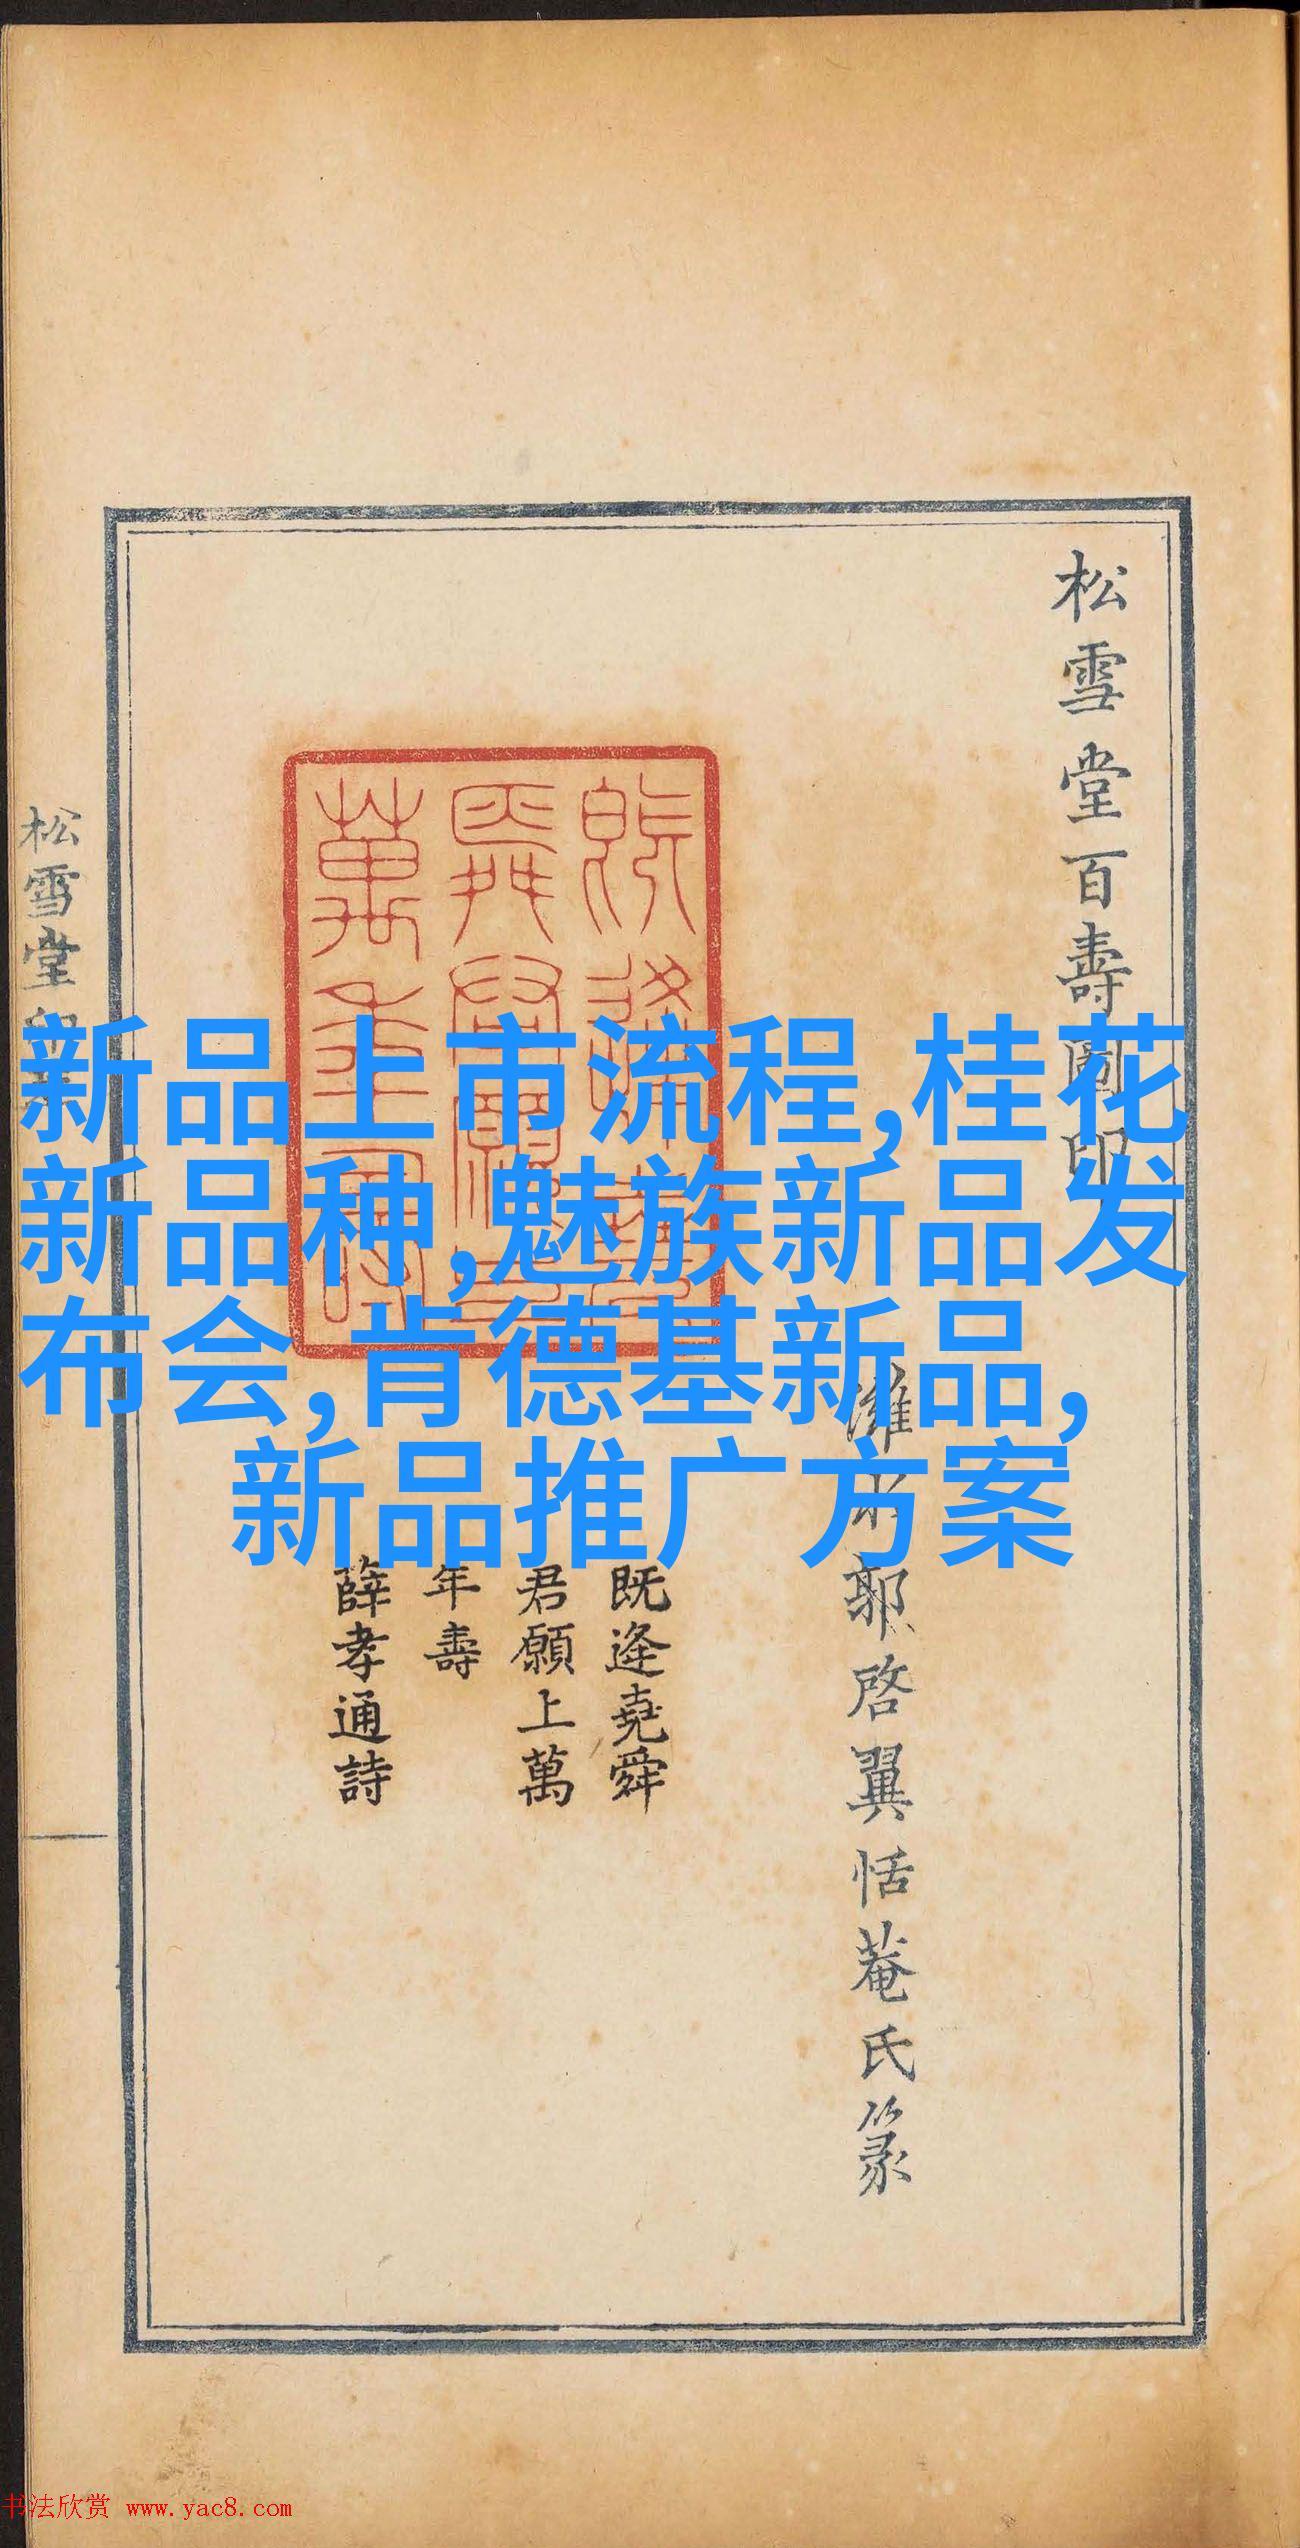 松雪堂百壽圖印
新品上市流程,桂花
新品种,魅族新品发
布会,肯德基新品,
新品推广方案
濰水郭啓翼恬菴氏篆
既逢堯舜
君願上萬
年壽
薛孝通詩
松雪堂印
书法欣赏 www.yac8.com